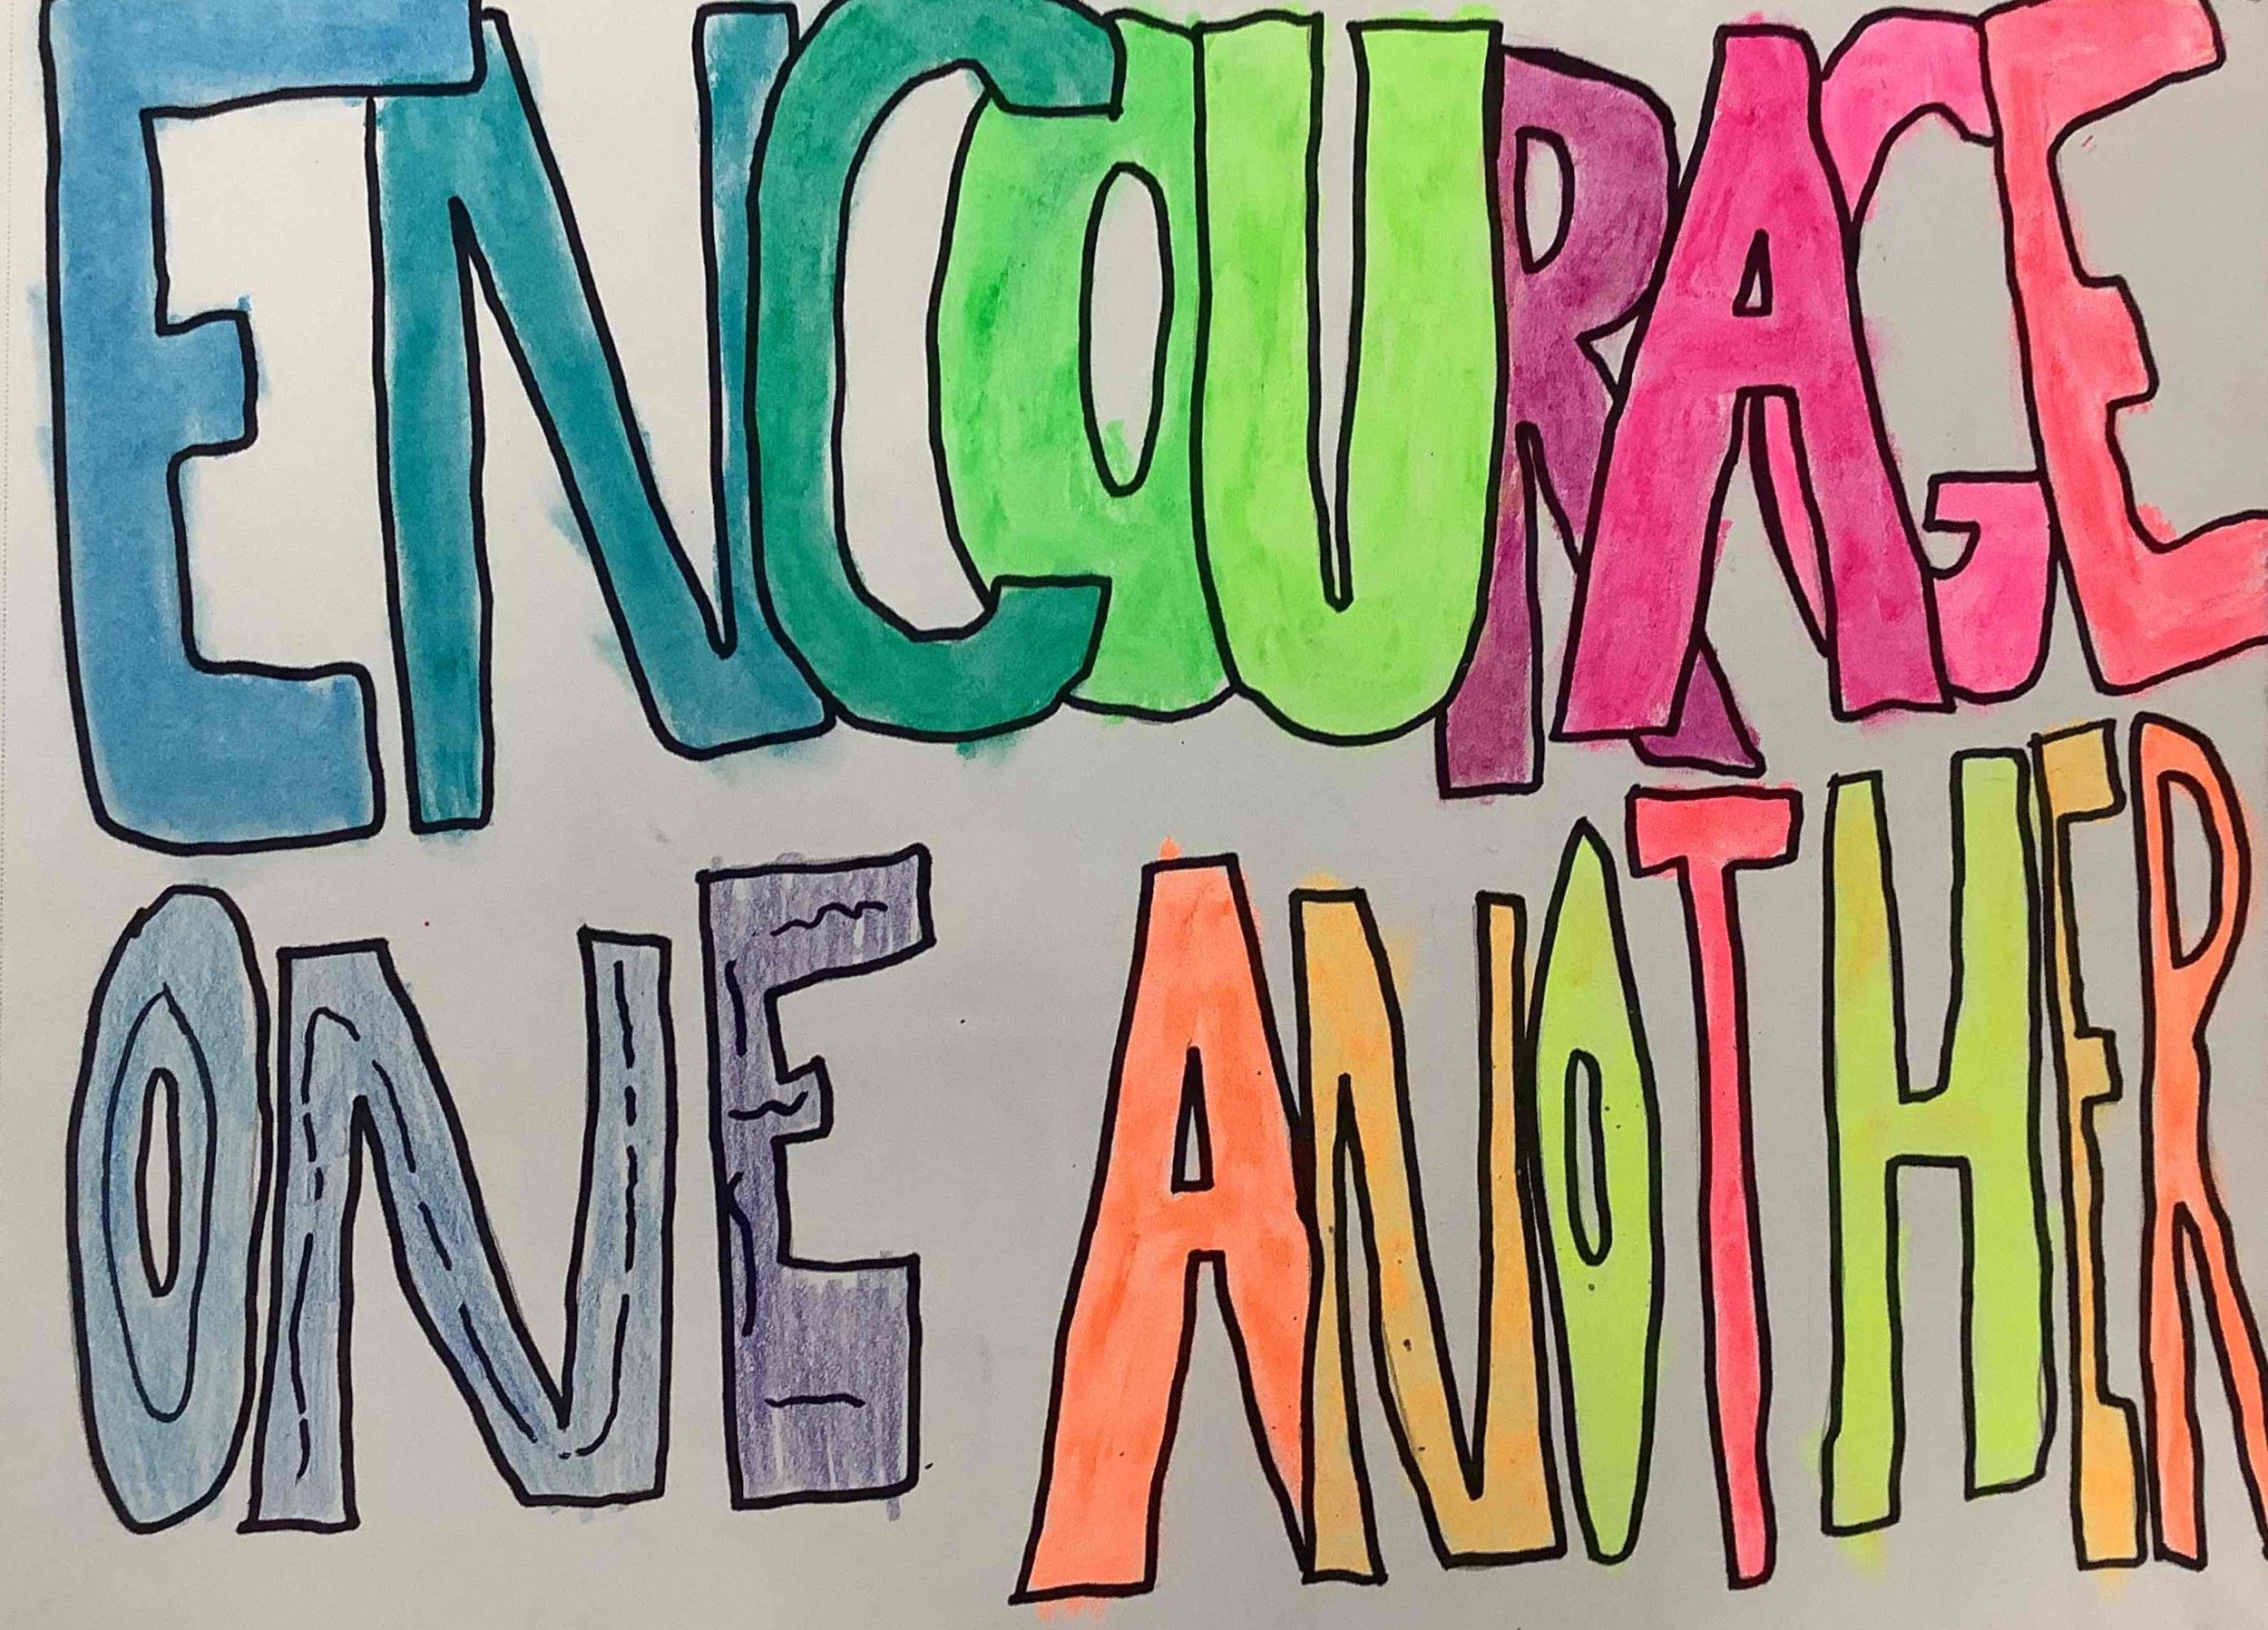 ENCOURAGE
ONE ANOTHER